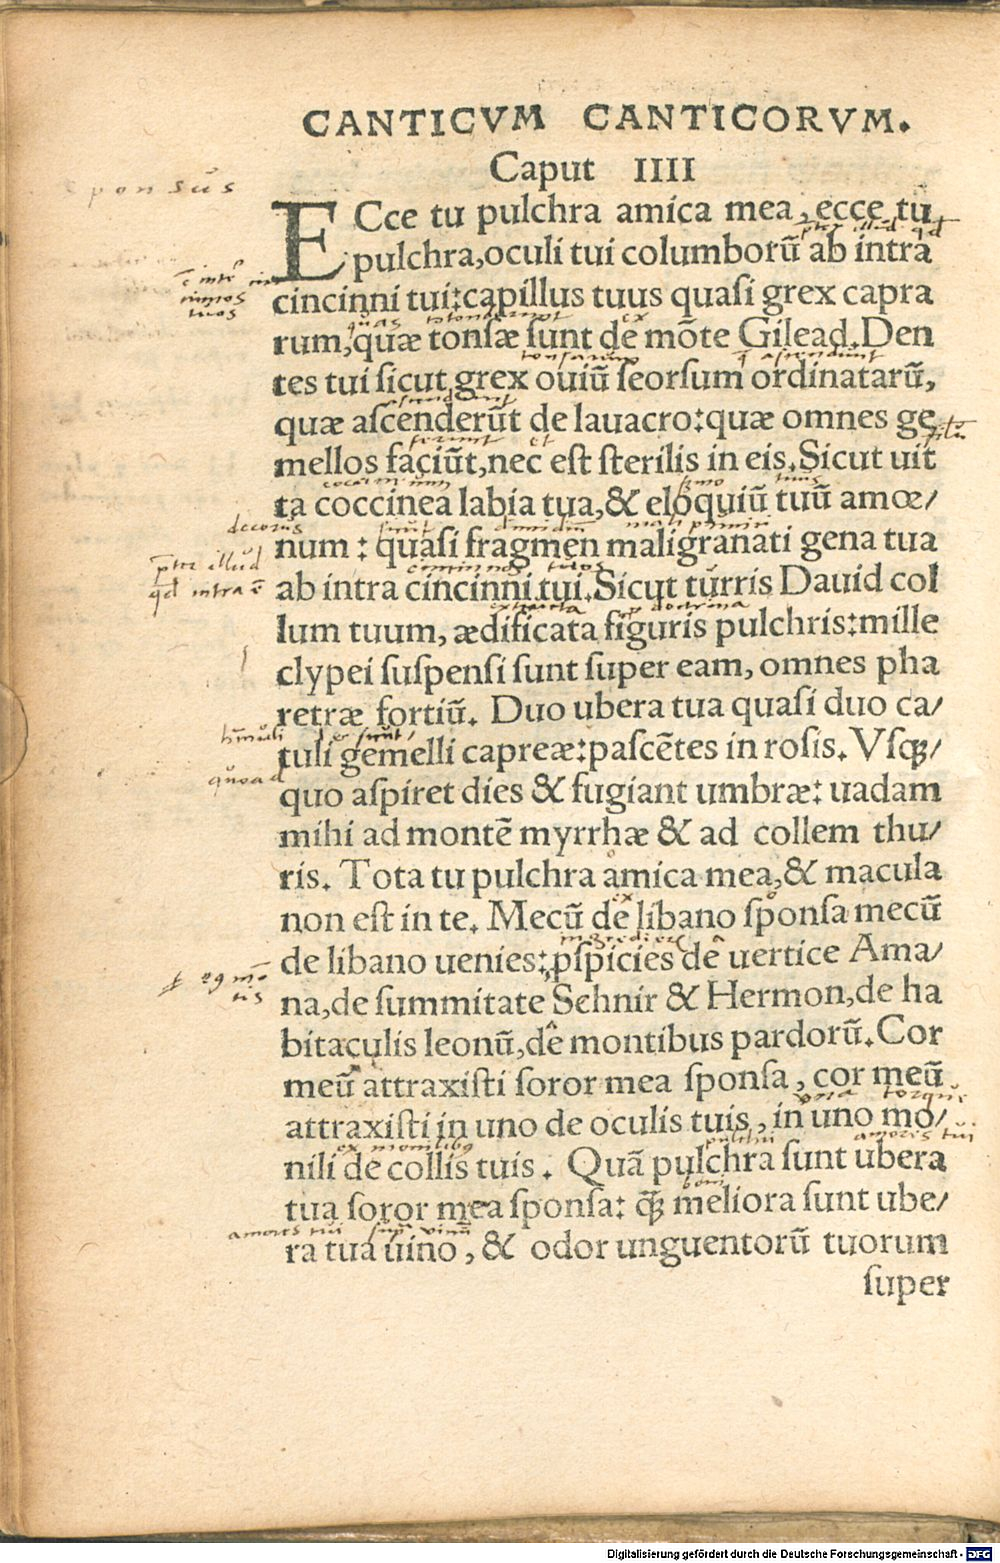 CANTICVM CANTICORVM.
Caput IIII
sponsus
ECce tu pulchra amica mea, ecce tu
pulchra, oculi tui columborū ab intra
cincinni tui: capillus tuus quasi grex capra
rum, quæ tonsæ sunt de mōte Gilead. Den
tes tui sicut grex ouiū seorsum ordinatarū,
quæ ascenderūt de lauacro: quæ omnes ge
mellos faciūt, nec est sterilis in eis. Sicut uit
ta coccinea labia tua, & eloquiū tuū amœ/
decorus
num : quasi fragmen maligranati gena tua
ab intra cincinni tui. Sicut turris Dauid col
lum tuum, ædificata figuris pulchris: mille
clypei suspensi sunt super eam, omnes pha
retræ fortiū. Duo ubera tua quasi duo ca/
tuli gemelli capreæ: pascētes in rosis. Vsq;/
quoad
quo aspiret dies & fugiant umbræ: uadam
mihi ad montē myrrhæ & ad collem thu/
ris. Tota tu pulchra amica mea, & macula
non est in te. Mecū de libano sponsa mecū
de libano uenies: ꝑspicies de uertice Ama/
na, de summitate Sehnir & Hermon, de ha
bitaculis leonū, de montibus pardorū. Cor
meū attraxisti soror mea sponsa, cor meū
attraxisti in uno de oculis tuis, in uno mo/
ex monilibus
nili de collis tuis. Quā pulchra sunt ubera
tua soror mea sponsa: q̄; meliora sunt ube/
amores tui
ra tua uino, & odor unguentorū tuorum
super
Digitalisierung gefördert durch die Deutsche Forschungsgemeinschaft - DFG